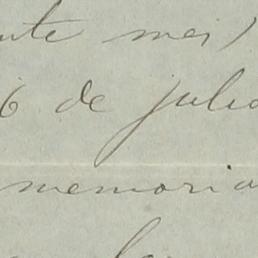 nte mes)
6 de julio
memoria